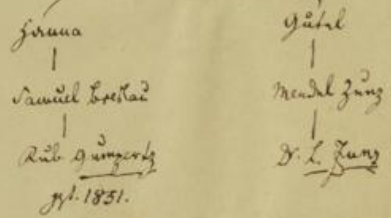 Hanna
Samuel Breslau
Rub Gumpertz
gst. 1851.
Gütel
Mendel Zunz
Dr. L. Zunz